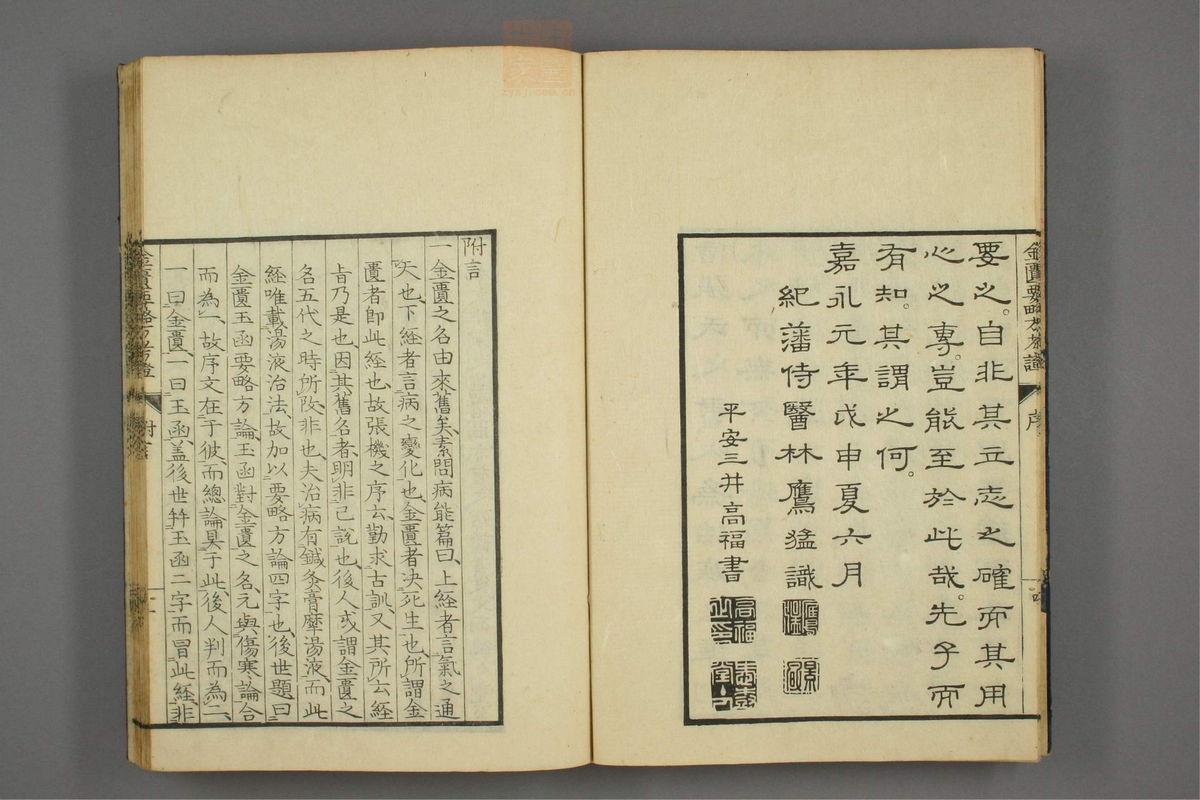 要之。自非其立志之確而其用
心之專。豈能至於此哉。先子而
有知。其謂之何。
嘉永元年戊申夏六月
紀藩侍醫林鷹猛識
平安三井高福書
附言
一金匱之名由來舊矣、素問病能篇曰、上經者言氣之通
天也、下經者言病之變化也、金匱者決死生也、所謂金
匱者卽此經也、故張機之序云、勤求古訓、又其所云經
旨乃是也、因其舊名者、明非己說也、後人或謂金匱之
名五代之時所改非也夫治病有鍼灸膏摩湯液、而此
經唯載湯液治法、故加以要略方論四字也後世題曰
金匱玉函要略方論、玉函對金匱之名、元與傷寒論合
而爲一、故序文在于彼、而總論具于此、後人判而爲二、
一曰金匱、一曰玉函、蓋後世幷玉函二字而冒此經、非